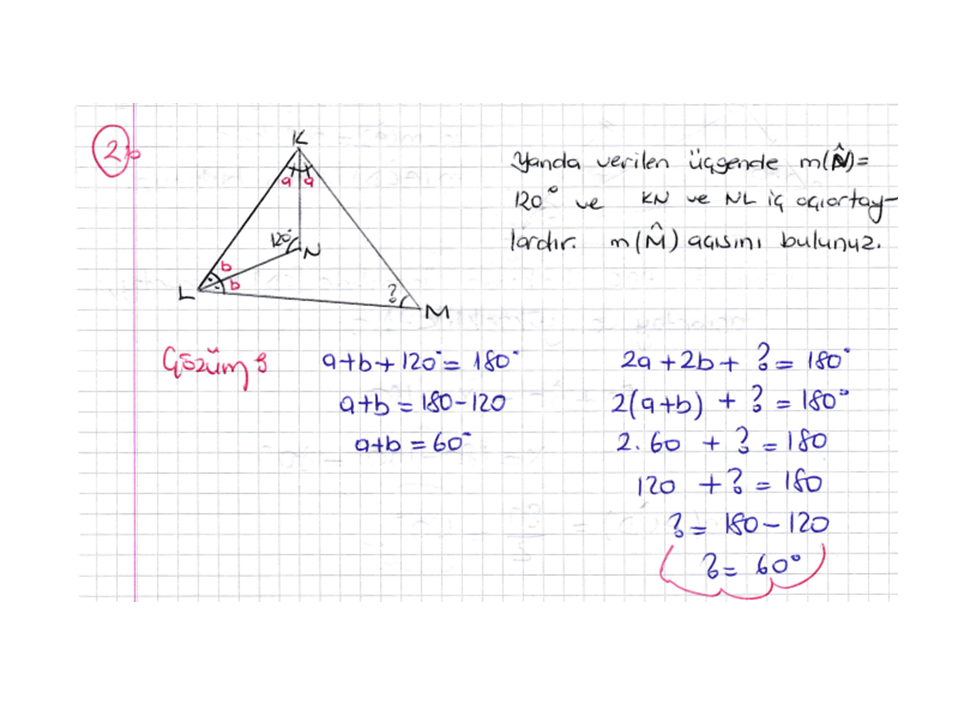 2)
K
a a
120°
N
b
b
L
?
M
Yanda verilen üçgende m(N̂)=
120° ve KN ve NL iç açıortay-
lardır. m(M̂) açısını bulunuz.
Çözüm:
a+b+120°=180°
a+b=180-120
a+b=60°
2a+2b+?=180°
2(a+b)+?=180°
2.60+?=180
120+?=180
?=180-120
?=60°